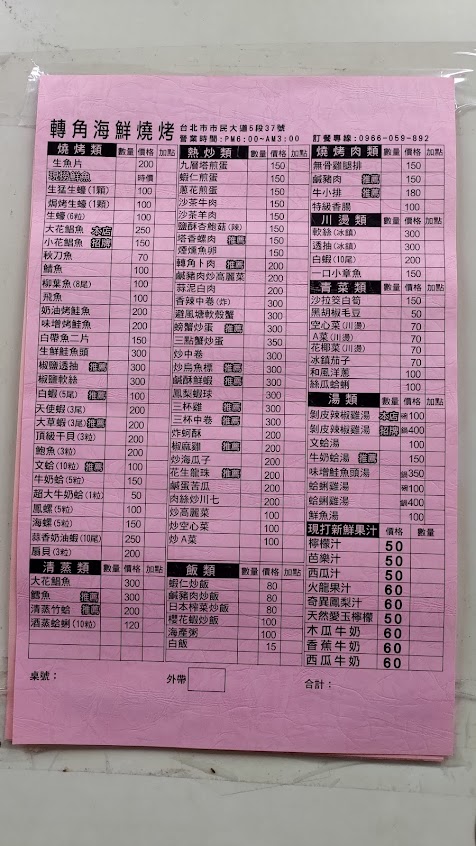 轉角海鮮燒烤
台北市市民大道5段37號
營業時間:PM6:00~AM3:00
訂餐專線:0966-059-892
燒烤類 數量 價格 加點
生魚片 200
現撈鮮魚 時價
生猛生蠔(1顆) 100
焗烤生蠔(1顆) 100
生蠔(6粒)
大花鯧魚 本店 250
小花鯧魚 招牌 150
秋刀魚 70
鯖魚 100
柳葉魚(8尾) 100
飛魚 100
奶油烤鮭魚 200
味增烤鮭魚 200
白帶魚二片 150
生鮮鮭魚頭 300
椒鹽透抽 推薦 300
椒鹽軟絲 300
白蝦(5尾) 推薦 100
天使蝦(3尾) 200
大草蝦(3尾) 推薦 200
頂級干貝(3粒) 200
鮑魚(3粒) 200
文蛤(10粒) 推薦 100
牛奶蛤(5粒) 150
超大牛奶蛤(1粒) 50
鳳螺(5粒) 100
海螺(5粒) 150
蒜香奶油蝦(10尾) 250
扇貝(3粒) 200
清蒸類 數量 價格 加點
大花鯧魚 300
鱈魚 推薦 300
清蒸竹蛤 推薦 200
酒蒸蛤蜊(10粒) 120
熱炒類 數量 價格 加點
九層塔煎蛋 150
蝦仁煎蛋 150
蔥花煎蛋 150
沙茶牛肉 150
沙茶羊肉 150
鹽酥杏鮑菇(辣) 150
塔香螺肉 推薦 150
煙燻魚卵 150
轉角卜肉 推薦 200
鹹豬肉炒高麗菜 200
蒜泥白肉 200
香辣中卷(炸) 300
避風塘軟殼蟹 300
螃蟹炒蛋 推薦 300
三點蟹炒蛋 350
炒中卷 300
炒烏魚標 推薦 300
鹹酥鮮蝦 推薦 300
鳳梨蝦球 300
三杯雞 推薦 300
三杯中卷 推薦 300
炸蚵酥 200
椒麻雞 200
炒海瓜子 200
花生龍珠 推薦 200
鹹蛋苦瓜 200
肉絲炒川七 200
炒高麗菜 100
炒空心菜 100
炒A菜 100
飯類 數量 價格 加點
蝦仁炒飯 80
鹹豬肉炒飯 80
日本榨菜炒飯 80
櫻花蝦炒飯 100
海產粥 100
白飯 15
燒烤肉類 數量 價格 加點
無骨雞腿排 150
鹹豬肉 推薦 150
牛小排 推薦 180
特級香腸 100
川燙類 數量 價格 加點
軟絲(冰鎮) 300
透抽(冰鎮) 300
白蝦(10尾) 200
一口小章魚 150
青菜類 數量 價格 加點
沙拉筊白筍 150
黑胡椒毛豆 50
空心菜(川燙) 70
A菜(川燙) 70
花椰菜(川燙) 70
冰鎮茄子 70
和風洋蔥 100
絲瓜蛤蜊 100
湯類 數量 價格 加點
剝皮辣椒雞湯 本店 碗100
剝皮辣椒雞湯 招牌 鍋400
文蛤湯 100
牛奶蛤湯 推薦 150
味增鮭魚頭湯 鍋350
蛤蜊雞湯 碗100
蛤蜊雞湯 鍋400
鮮魚湯 100
現打新鮮果汁 價格 數量
檸檬汁 50
芭樂汁 50
西瓜汁 50
火龍果汁 60
奇異鳳梨汁 60
天然愛玉檸檬 50
木瓜牛奶 60
香蕉牛奶 60
西瓜牛奶 60
桌號：
外帶
合計：